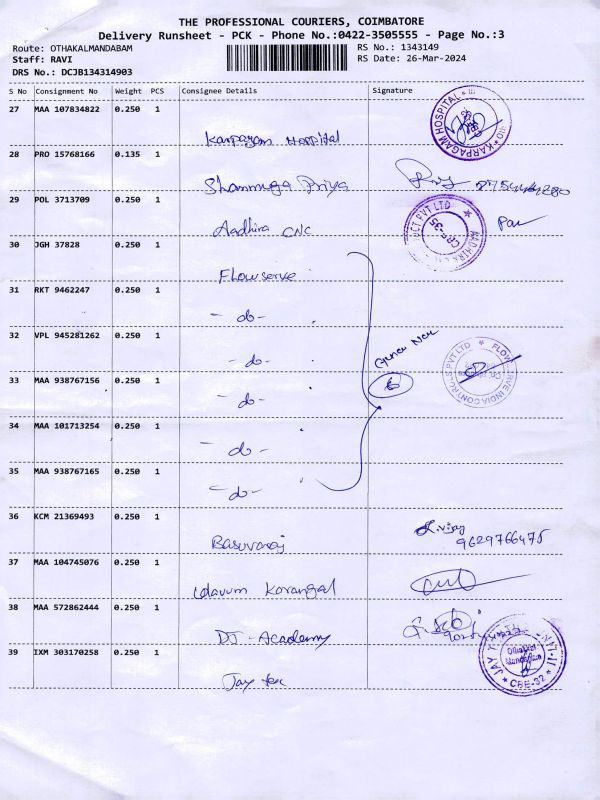 THE PROFESSIONAL COURIERS, COIMBATORE
Delivery Runsheet - PCK - Phone No.:0422-3505555 - Page No.:3
Route: OTHAKALMANDABAM RS No.: 1343149
Staff: RAVI RS Date: 26-Mar-2024
DRS No.: DCJB134314903
S No Consignment No Weight PCS Consignee Details Signature
27 MAA 107834822 0.250 1
Karpagam Hospital
KARPAGAM HOSPITAL
28 PRO 15768166 0.135 1
Shanmuga Priya
29 POL 3713709 0.250 1
Aadhira CNC
30 JGH 37828 0.250 1
Flowserve
31 RKT 9462247 0.250 1
- do -
32 VPL 945281262 0.250 1
- do -
FLOWSERVE INDIA CONTROLS PVT LTD
33 MAA 938767156 0.250 1
- do -
34 MAA 101713254 0.250 1
- do -
35 MAA 938767165 0.250 1
- do -
36 KCM 21369493 0.250 1
K. vijay
9629766475
Basuvaraj
37 MAA 104745076 0.250 1
Udavum Karangal
38 MAA 572862444 0.250 1
DJ - Academy
39 IXM 303170258 0.250 1
CBE-32
Jay tex